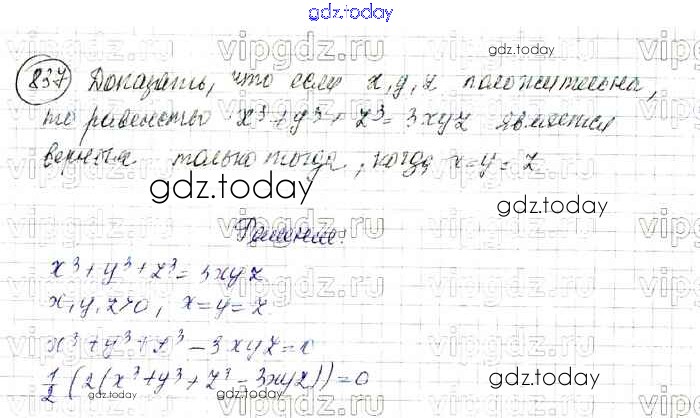 gdz.today
837 Доказать, что если x, y, z положительна,
то равенство x³+y³+z³=3xyz является
верным только тогда, когда x=y=z
gdz.today
gdz.today
Решение:
x³+y³+z³=3xyz
x,y,z>0, x=y=z
x³+y³+z³-3xyz=0
1/2(2(x³+y³+z³-3xyz))=0
gdz.today
gdz.today